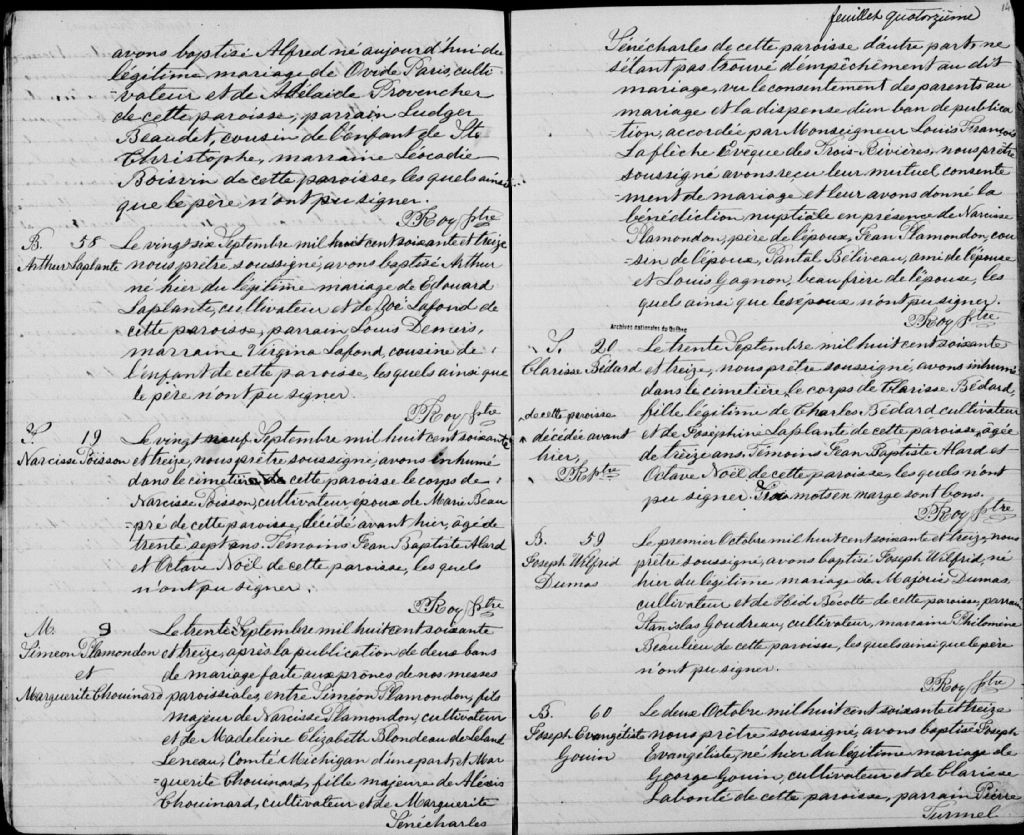 avons baptisé Alfred né aujourd'hui du
légitime mariage de Ovide Paris, culti
-vateur et de Adélaide Provencher
de cette paroisse, parrain Ludger
Beaudet, cousin de l'enfant de St.
Christophe, marraine Léocadie
Boisvin de cette paroisse, les quels ainsi
que le père n'ont pu signer.
Roy ptre
B. 58
Arthur Laplante
Le vingt six Septembre mil huit cent soixante et treize
nous prêtre soussigné, avons baptisé Arthur
né hier du légitime mariage de Edouard
Laplante, cultivateur et de Zoé Lafond de
cette paroisse, parrain Louis Demers,
marraine Virgina Lafond, cousine de
l'enfant de cette paroisse, les quels ainsi que
le père n'ont pu signer.
Roy ptre
S. 19
Narcisse Poisson
Le vingt neuf Septembre mil huit cent soixante
et treize, nous prêtre soussigné, avons inhumé
dans le cimetière de cette paroisse le corps de
Narcisse Poisson, cultivateur, époux de Marie Beau
-pré de cette paroisse, décédé avant hier, agé de
trente sept ans. Témoins Jean Baptiste Alard
et Octave Noël de cette paroisse, les quels
n'ont pu signer.
Roy ptre
M. 9
Simeon Plamondon
et
Marguerite Chouinard
Le trente Septembre mil huit cent soixante
et treize, après la publication de deux bans
de mariage faite aux prônes de nos messes
paroissiales, entre Siméon Plamondon, fils
majeur de Narcisse Plamondon, cultivateur
et de Madeleine Elizabeth Blondeau de Leland
Leneau, Comté Michigan d'une part, et Mar
-guerite Chouinard, fille majeure de Alexis
Chouinard, cultivateur et de Marguerite
Sénécharles
feuillet quatorzième
14
Sénécharles de cette paroisse d'autre part, ne
s'étant pas trouvé d'empêchement au dit
mariage, vu le consentement des parents au
mariage et la dispense d'un ban de publica
-tion, accordée par Monseigneur Louis François
Laflèche Evêque des Trois-Rivières, nous prêtre
soussigné avons reçu leur mutuel consente
-ment de mariage et leur avons donné la
bénédiction nuptiale en présence de Narcisse
Plamondon, père de l'époux, Jean Plamondon, cou
-sin de l'époux, Pantal Béliveau, ami de l'épouse
et Louis Gagnon, beau frère de l'épouse, les
quels ainsi que les époux n'ont pu signer.
Roy ptre
Archives nationales du Québec
S. 20
Clarisse Bédard
Le trente Septembre mil huit cent soixante
et treize, nous prêtre soussigné, avons inhumé
dans le cimetière, le corps de Clarisse Bédard,
fille légitime de Charles Bédard cultivateur
et de Joséphine Laplante de cette paroisse, agée
de treize ans. Témoins Jean Baptiste Alard et
Octave Noël de cette paroisse, les quels n'ont
pu signer. mots en marge sont bons.
Roy ptre
de cette paroisse
décédée avant
hier,
R ptre
B. 59
Joseph Wilfrid
Dumas
Le premier Octobre mil huit cent soixante et treize, nous
prêtre soussigné, avons baptisé Joseph Wilfrid, né
hier du légitime mariage de Majorie Dumas,
cultivateur et de Hid Bécotte de cette paroisse, parrain
Stanislas Goudreau, cultivateur, marraine Philomène
Beaulieu de cette paroisse, les quels ainsi que le père
n'ont pu signer.
Roy ptre
B. 60
Joseph Evangéliste
Gouin
Le deux Octobre mil huit cent soixante et treize
nous prêtre soussigné, avons baptisé Joseph
Evangéliste, né hier du légitime mariage de
George Gouin, cultivateur et de Clarisse
Labonté de cette paroisse, parrain Pierre
Turmel